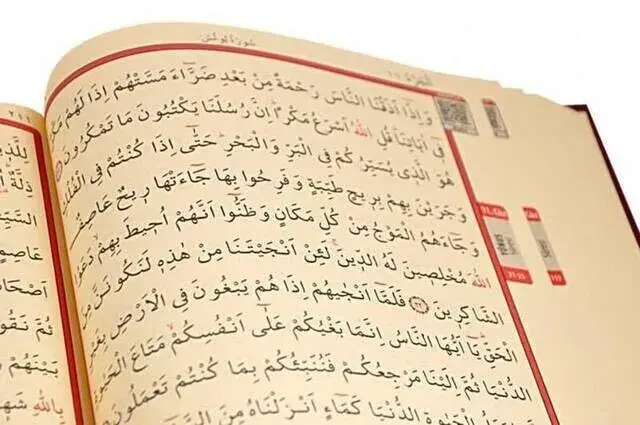 سورة يونس
وَاِذَٓا اَذَقْنَا النَّاسَ رَحْمَةً مِنْ بَعْدِ ضَرَّٓاءَ مَسَّتْهُمْ اِذَا لَهُمْ مَكْرٌ
فِٓي اٰيَاتِنَا قُلِ اللّٰهُ اَسْرَعُ مَكْرًا اِنَّ رُسُلَنَا يَكْتُبُونَ مَا تَمْكُرُونَ
هُوَ الَّذِي يُسَيِّرُكُمْ فِي الْبَرِّ وَالْبَحْرِ حَتّٰٓى اِذَا كُنْتُمْ فِي الْفُلْكِ
وَجَرَيْنَ بِهِمْ بِرِيحٍ طَيِّبَةٍ وَفَرِحُوا بِهَا جَٓاءَتْهَا رِيحٌ عَاصِفٌ
وَجَٓاءَهُمُ الْمَوْجُ مِنْ كُلِّ مَكَانٍ وَظَنُّٓوا اَنَّهُمْ اُحِيطَ بِهِمْ دَعَوُا
اللّٰهَ مُخْلِصِينَ لَهُ الدِّينَ لَئِنْ اَنْجَيْتَنَا مِنْ هٰذِهٖ لَنَكُونَنَّ مِنَ
الشَّاكِرِينَ ﴿٢٢﴾ فَلَمَّٓا اَنْجٰيهُمْ اِذَا هُمْ يَبْغُونَ فِي الْاَرْضِ بِغَيْرِ
الْحَقِّ يَٓا اَيُّهَا النَّاسُ اِنَّمَا بَغْيُكُمْ عَلٰٓى اَنْفُسِكُمْ مَتَاعَ الْحَيٰوةِ
الدُّنْيَا ثُمَّ اِلَيْنَا مَرْجِعُكُمْ فَنُنَبِّئُكُمْ بِمَا كُنْتُمْ تَعْمَلُونَ
الْحَيٰوةِ الدُّنْيَا كَمَٓاءٍ اَنْزَلْنَاهُ مِنَ
11. Cüz